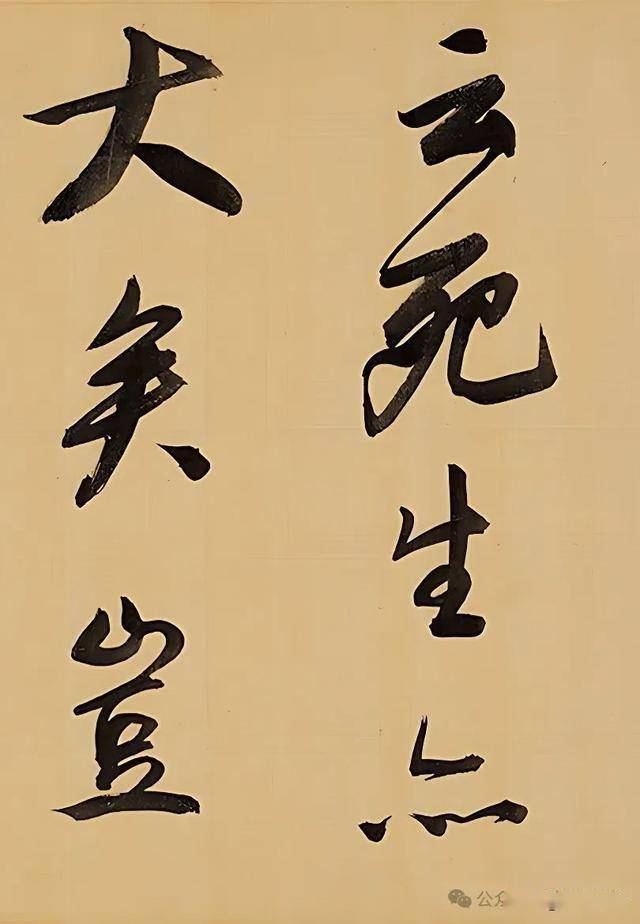 云死生亦
大矣豈
公众